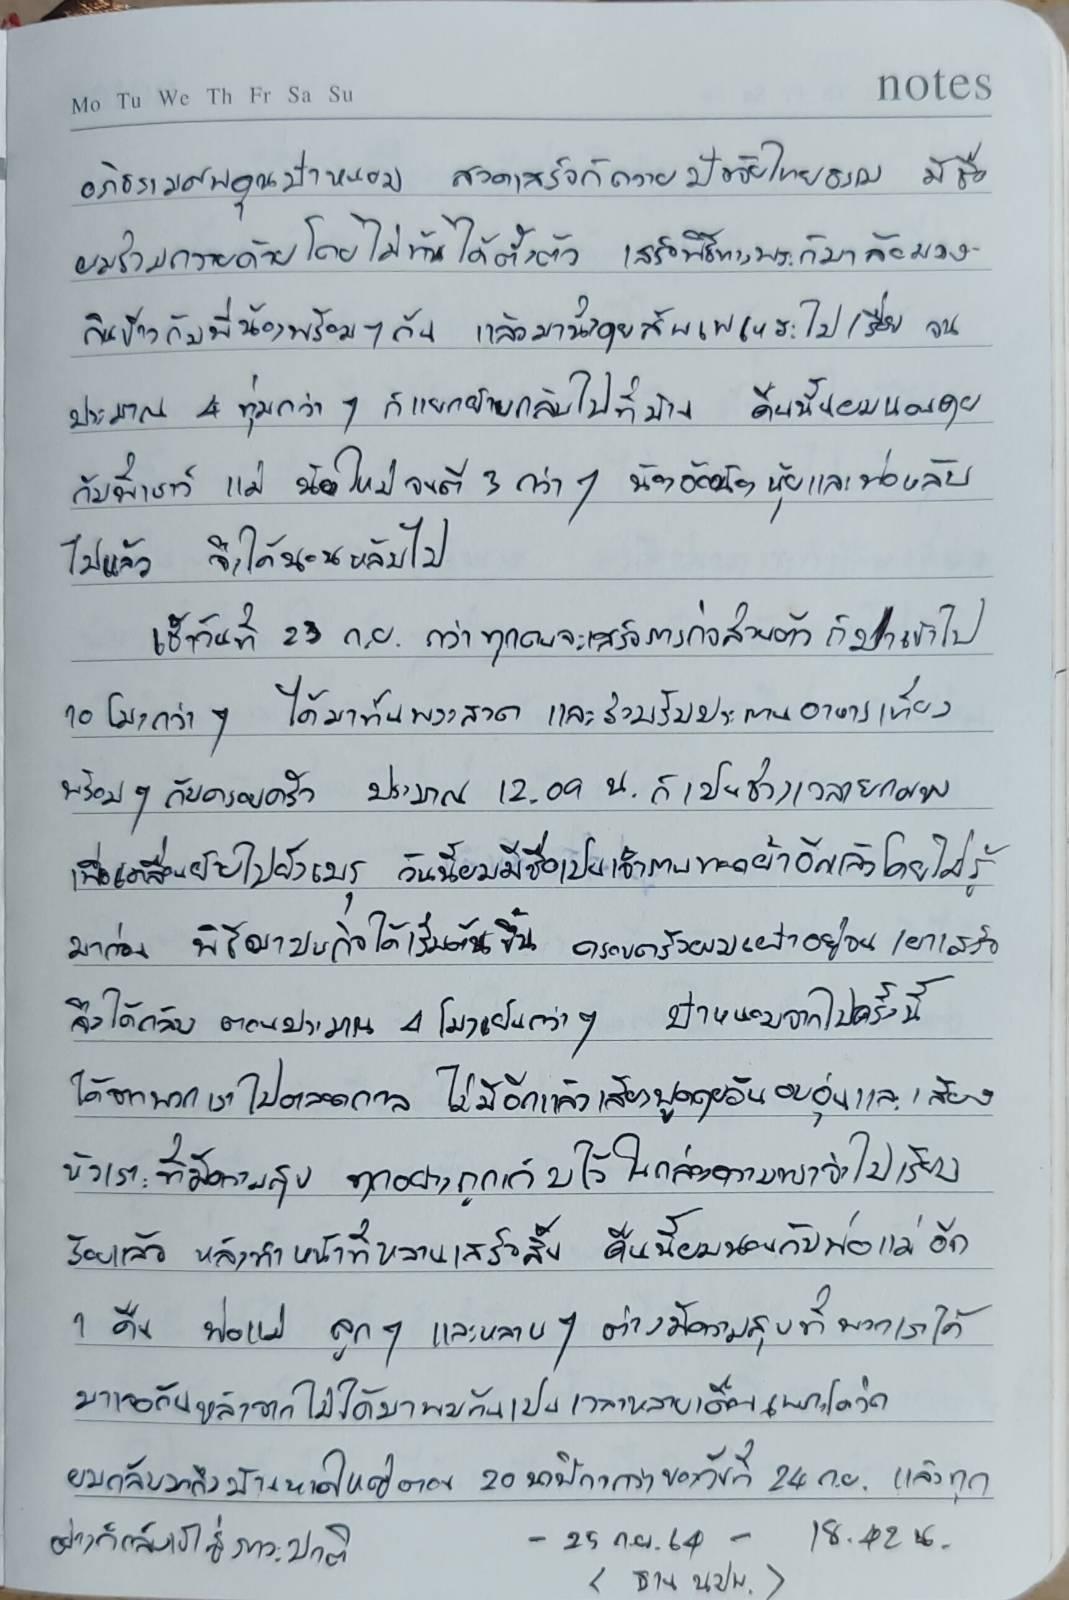 Mo Tu We Th Fr Sa Su
notes
อภิธรรมศพคุณป้าหนอม สวดเสร็จก็ถวายปัจจัยไทยธรรม มีชื่อ
ผมร่วมถวายด้วยโดยไม่ทันได้ตั้งตัว เสร็จพิธีทางพระก็มาล้อมวง
กินข้าวกับพี่น้องพร้อมๆกัน แล้วมานั่งคุยสัพเพเหระไปเรื่อย จน
ประมาณ 4 ทุ่มกว่าๆ ก็แยกย้ายกลับไปที่บ้าน คืนนั้นผมนอนคุย
กับพี่เยาว์ แม่ น้องใหม่ จนตี 3 กว่าๆ น้องอ้อน้องหุ้ยและพ่อหลับ
ไปแล้ว จึงได้นอนหลับไป
เช้าวันที่ 23 ก.ย. กว่าทุกคนจะเสร็จภารกิจส่วนตัว ก็ปาเข้าไป
10 โมงกว่าๆ ได้มาทันพระสวด และร่วมรับประทานอาหารเที่ยง
พร้อมๆ กับครอบครัว ประมาณ 12.09 น. ก็เป็นช่วงเวลายกศพ
เพื่อเคลื่อนย้ายไปยังเมรุ วันนี้ผมมีชื่อเป็นเจ้าภาพทอดผ้าอีกแล้วโดยไม่รู้
มาก่อน พิธีฌาปนกิจได้เริ่มต้นขึ้น ครอบครัวผมเฝ้าอยู่จน เผาเสร็จ
จึงได้กลับ ตอนประมาณ 4 โมงเย็นกว่าๆ ป้าหนอมจากไปครั้งนี้
ได้จากพวกเราไปตลอดกาล ไม่มีอีกแล้วเสียงพูดคุยอันอบอุ่นและเสียง
หัวเราะที่มีความสุข ทุกอย่างถูกเก็บไว้ในกล่องความทรงจำไปเรียบ
ร้อยแล้ว หลังทำหน้าที่หลานเสร็จสิ้น คืนนี้ผมนอนกับพ่อแม่อีก
1 คืน พ่อแม่ ลูกๆ และหลานๆ ต่างมีความสุขที่พวกเราได้
มาเจอกันหลังจากไม่ได้มาพบกันเป็นเวลาหลายเดือนเพราะโควิด
ผมกลับมาถึงบ้านหาดใหญ่ตอน 20 นาฬิกากว่าของวันที่ 24 ก.ย. แล้วทุก
อย่างก็กลับเข้าสู่ภาวะปกติ - 25 ก.ย. 64 - 18.42 น.
( ฐาน นปพ. )